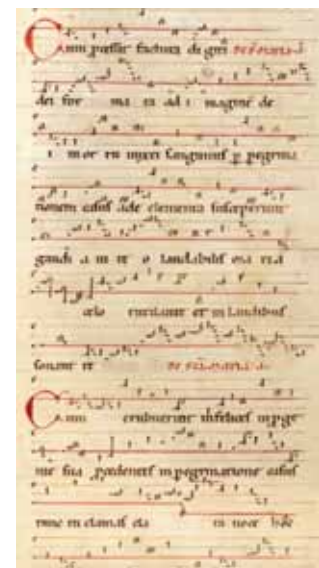 Cum pcessit factura digiti
dei for ma ta ad i magine de
i in or tu mixti sanguinis p pegrina
tionem casus ade elementa susceperunt
gaudi a in te o laudabilis ma ria
celo rutilante et in laudibus
sonan te
Cum erubuerint infelices in pge
nie sua pcedentes in pegrinatione casus
tunc tu clamas cla ra uoce hoc